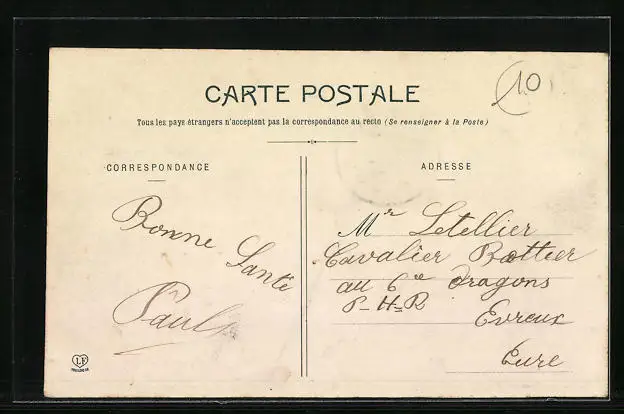 10
CARTE POSTALE
Tous les pays étrangers n'acceptent pas la correspondance au recto (Se renseigner à la Poste)
CORRESPONDANCE
Bonne Santé
Paul
ADRESSE
Mr Letellier
Cavalier Bottier
au 6e Dragons
P-H=R
Evreux
Eure
LF